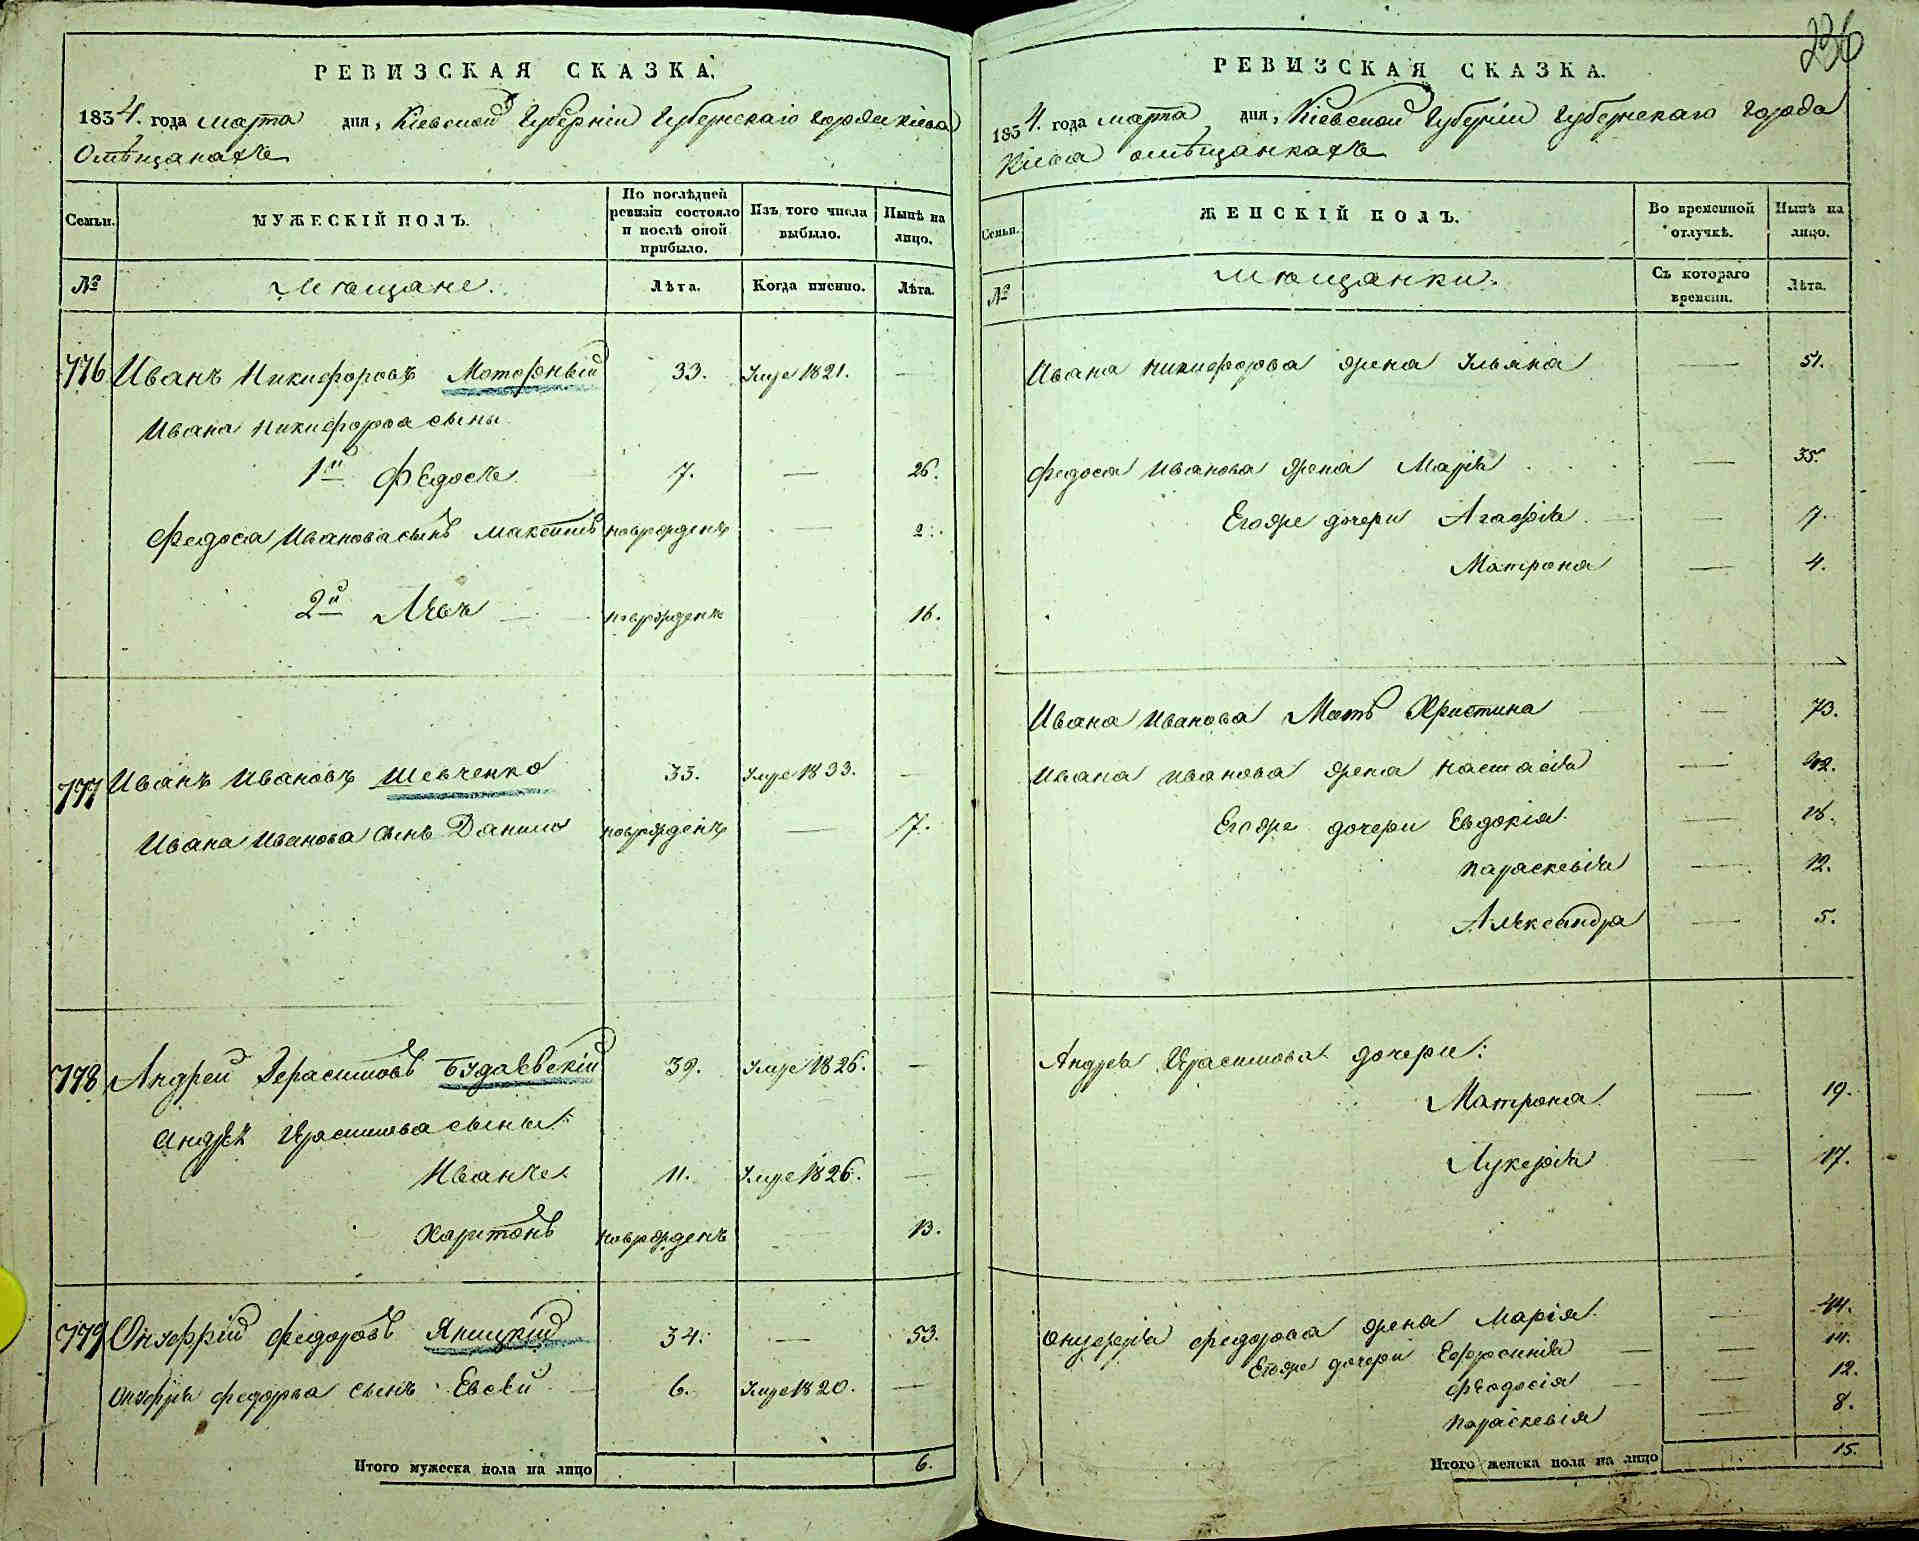 РЕВИЗСКАЯ СКАЗКА.
1834. года марта дня, Кіевской Губерніи Губернскаго города Кіева
О мѣщанахъ
Семьи.
МУЖЕСКІЙ ПОЛЪ.
По послѣдней ревизіи состояло и послѣ оной прибыло.
Изъ того числа выбыло.
Нынѣ на лицо.
№
Мѣщане.
Лѣта.
Когда именно.
Лѣта.
776 Иванъ Никифоровъ 33. Умре 1821. —
Ивана Никифорова сыны
1й Федосъ 7. — 26.
Федоса Иванова сынъ Максимъ новорожденъ — 2.
2й Левъ — новорожденъ 16.
777 Иванъ Ивановъ Шевченко 33. Умре 1833. —
Ивана Иванова сынъ Данило новорожденъ — 7.
778 Андрей Герасимовъ Будаевскій 39. Умре 1826. —
Андрея Герасимова сыны:
Иванъ. 11. Умре 1826. —
Харитонъ новорожденъ 13.
779 Онуфрій Федоровъ Яницкій 34. — 53.
Онуфрія Федорова сынъ Евсѣй 6. Умре 1820. —
Итого мужеска пола на лицо 6.
236
РЕВИЗСКАЯ СКАЗКА.
1834. года марта дня, Кіевской Губерніи Губернскаго города
Кіева о мѣщанкахъ
Семьи.
ЖЕНСКІЙ ПОЛЪ.
Во временной отлучкѣ.
Нынѣ на лицо.
№
Мѣщанки.
Съ котораго времени.
Лѣта.
Ивана Никифорова жена Ульяна — 51.
Федоса Иванова жена Марія — 35.
Егоже дочери Агафія — 7.
Матрона — 4.
Ивана Иванова Мать Христина — 73.
Ивана Иванова жена Настасія —
Егоже дочери Евдокія — 16.
Параскевія — 12.
Александра — 5.
Андрея Герасимова дочери:
Матрона — 19.
Лукерія — 17.
Онуфрія Федорова жена Марія — 44.
Егоже дочери Ефросинія — 14.
Феодосія — 12.
Параскевія — 8.
Итого женска пола на лицо 15.